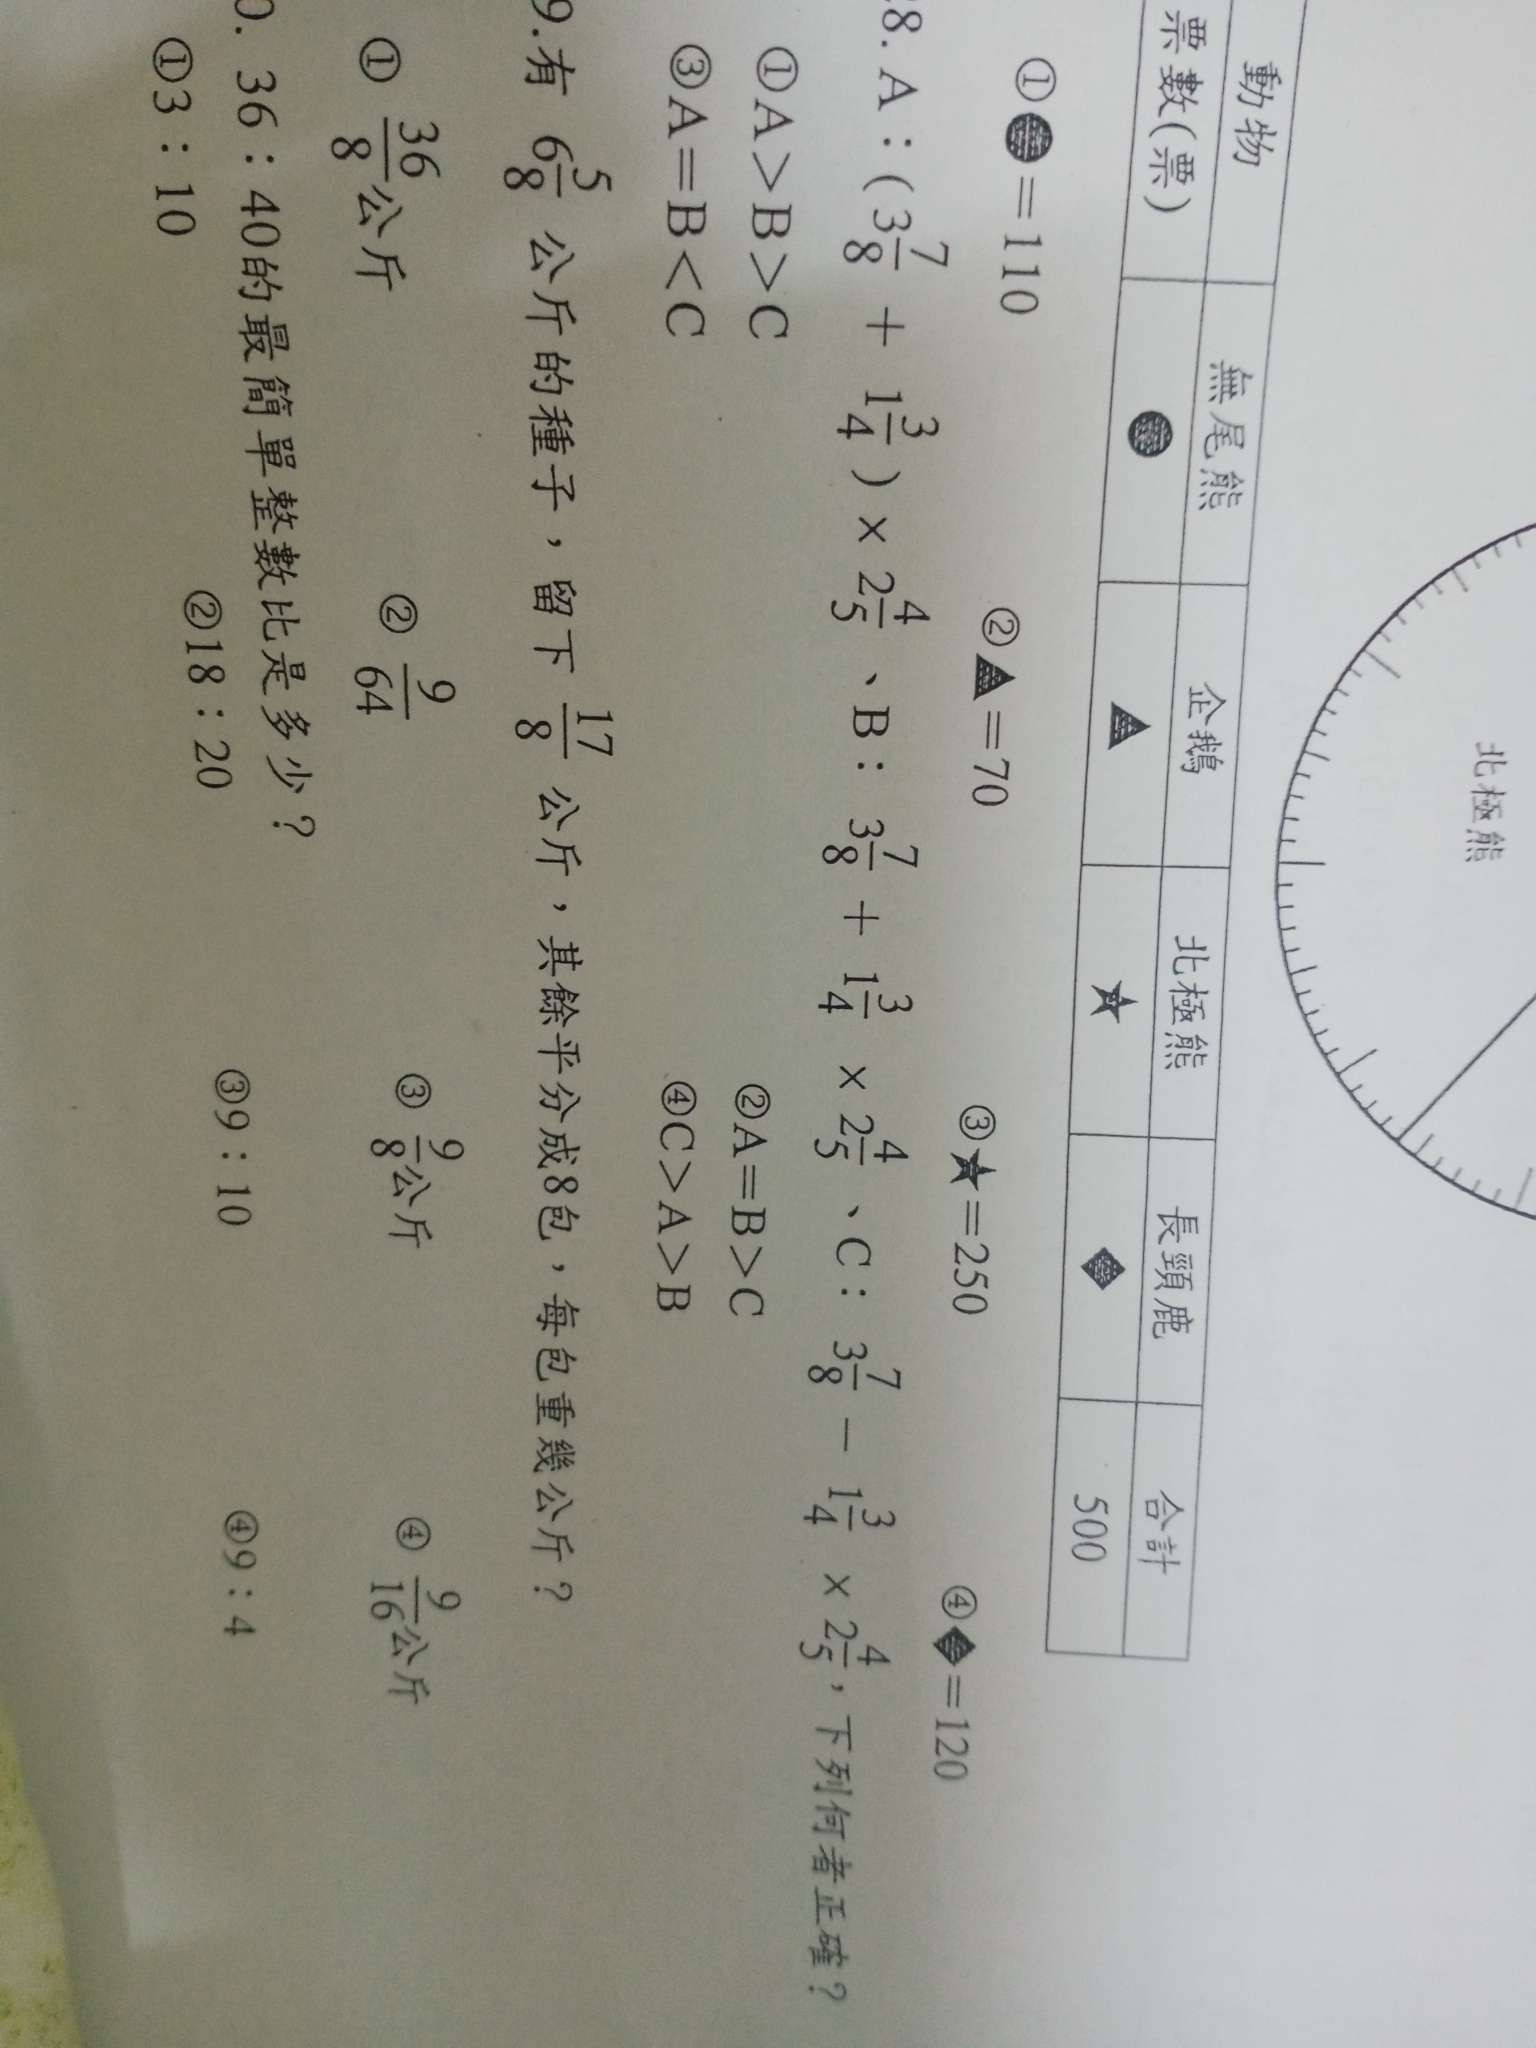 北極熊
動物 無尾熊 企鵝 北極熊 長頸鹿 合計
票數(票) ● ▲ ★ ◆ 500
①●=110 ②▲=70 ③★=250 ④◆=120
8. A：(3 7/8 + 1 3/4 ) × 2 4/5 、B： 3 7/8 + 1 3/4 × 2 4/5 、C： 3 7/8 － 1 3/4 × 2 4/5，下列何者正確？
①A＞B＞C ②A＝B＞C
③A＝B＜C ④C＞A＞B
9.有 6 5/8 公斤的種子，留下 17/8 公斤，其餘平分成8包，每包重幾公斤？
① 36/8公斤 ② 9/64 ③ 9/8公斤 ④ 9/16公斤
0. 36：40的最簡單整數比是多少？
①3：10 ②18：20 ③9：10 ④9：4